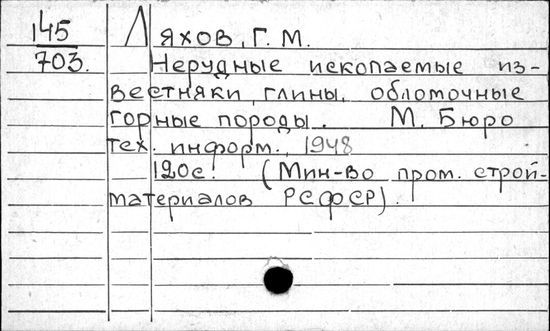 145 Ляхов, Г. М.
703. Нерудные ископаемые из-
вестняки, глины, обломочные
горные породы. М. Бюро
тех. информ., 1948
120с. (Мин-во пром. строй-
материалов РСФСР).